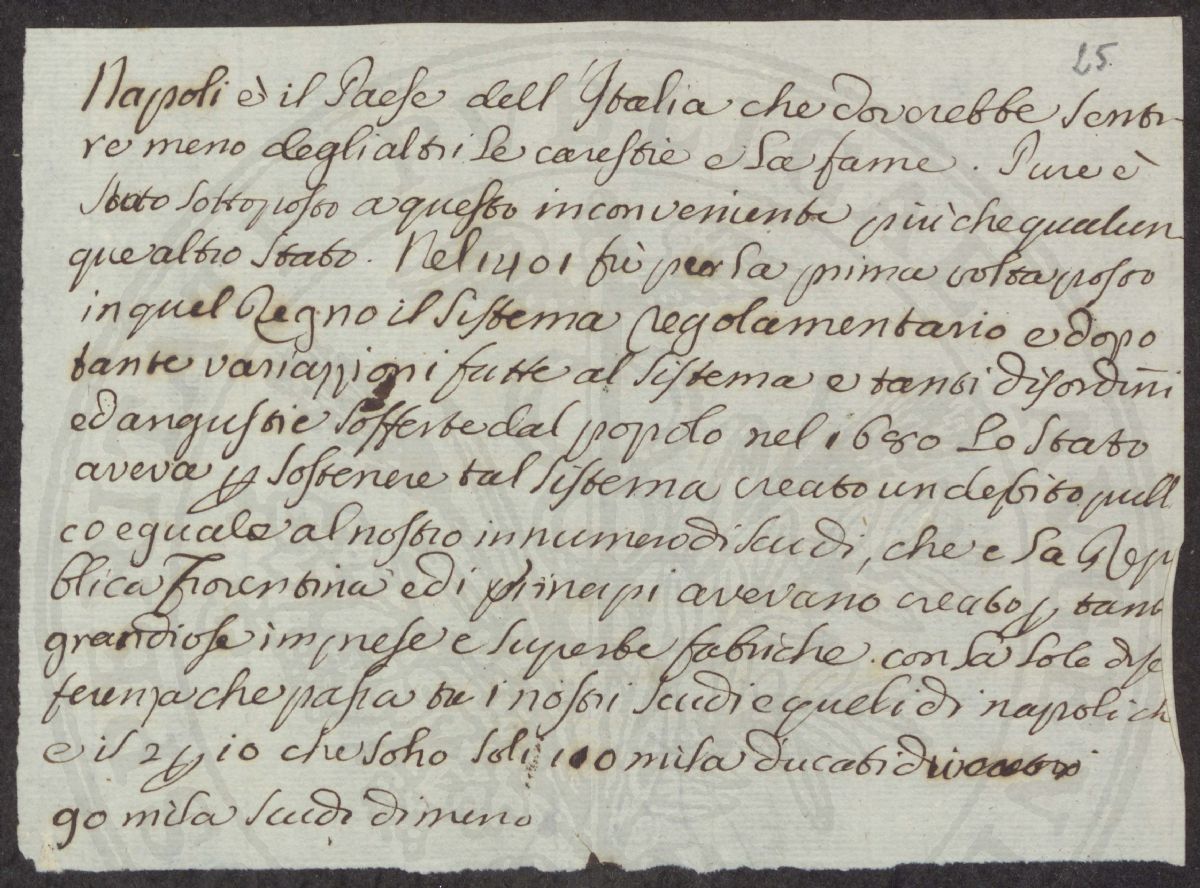 25
Napoli è il Paese dell'Italia che doverebbe senti-
re meno degli altri le carestie e la fame. Pure è
stato sottoposto a questo inconveniente più che qualun-
que altro stato. Nel 1401 fù per la prima volta posto
in quel Regno il sistema regolamentario e dopo
tante variazzioni fatte al sistema e tanti disordini
ed angustie sofferte dal popolo nel 1680 lo stato
aveva p sostenere tal sistema creato un debito pull
co eguale al nostro in numero di scudi, che e la Rep
blica Fiorentina ed i principi avevano creato p tant
grandiose imprese e superbe fabriche con la sola dife
ferenza che passa tra i nostri scudi e queli di napoli ch
e il 2 p 10 che sono soli 110 mila ducati di
90 mila scudi di meno